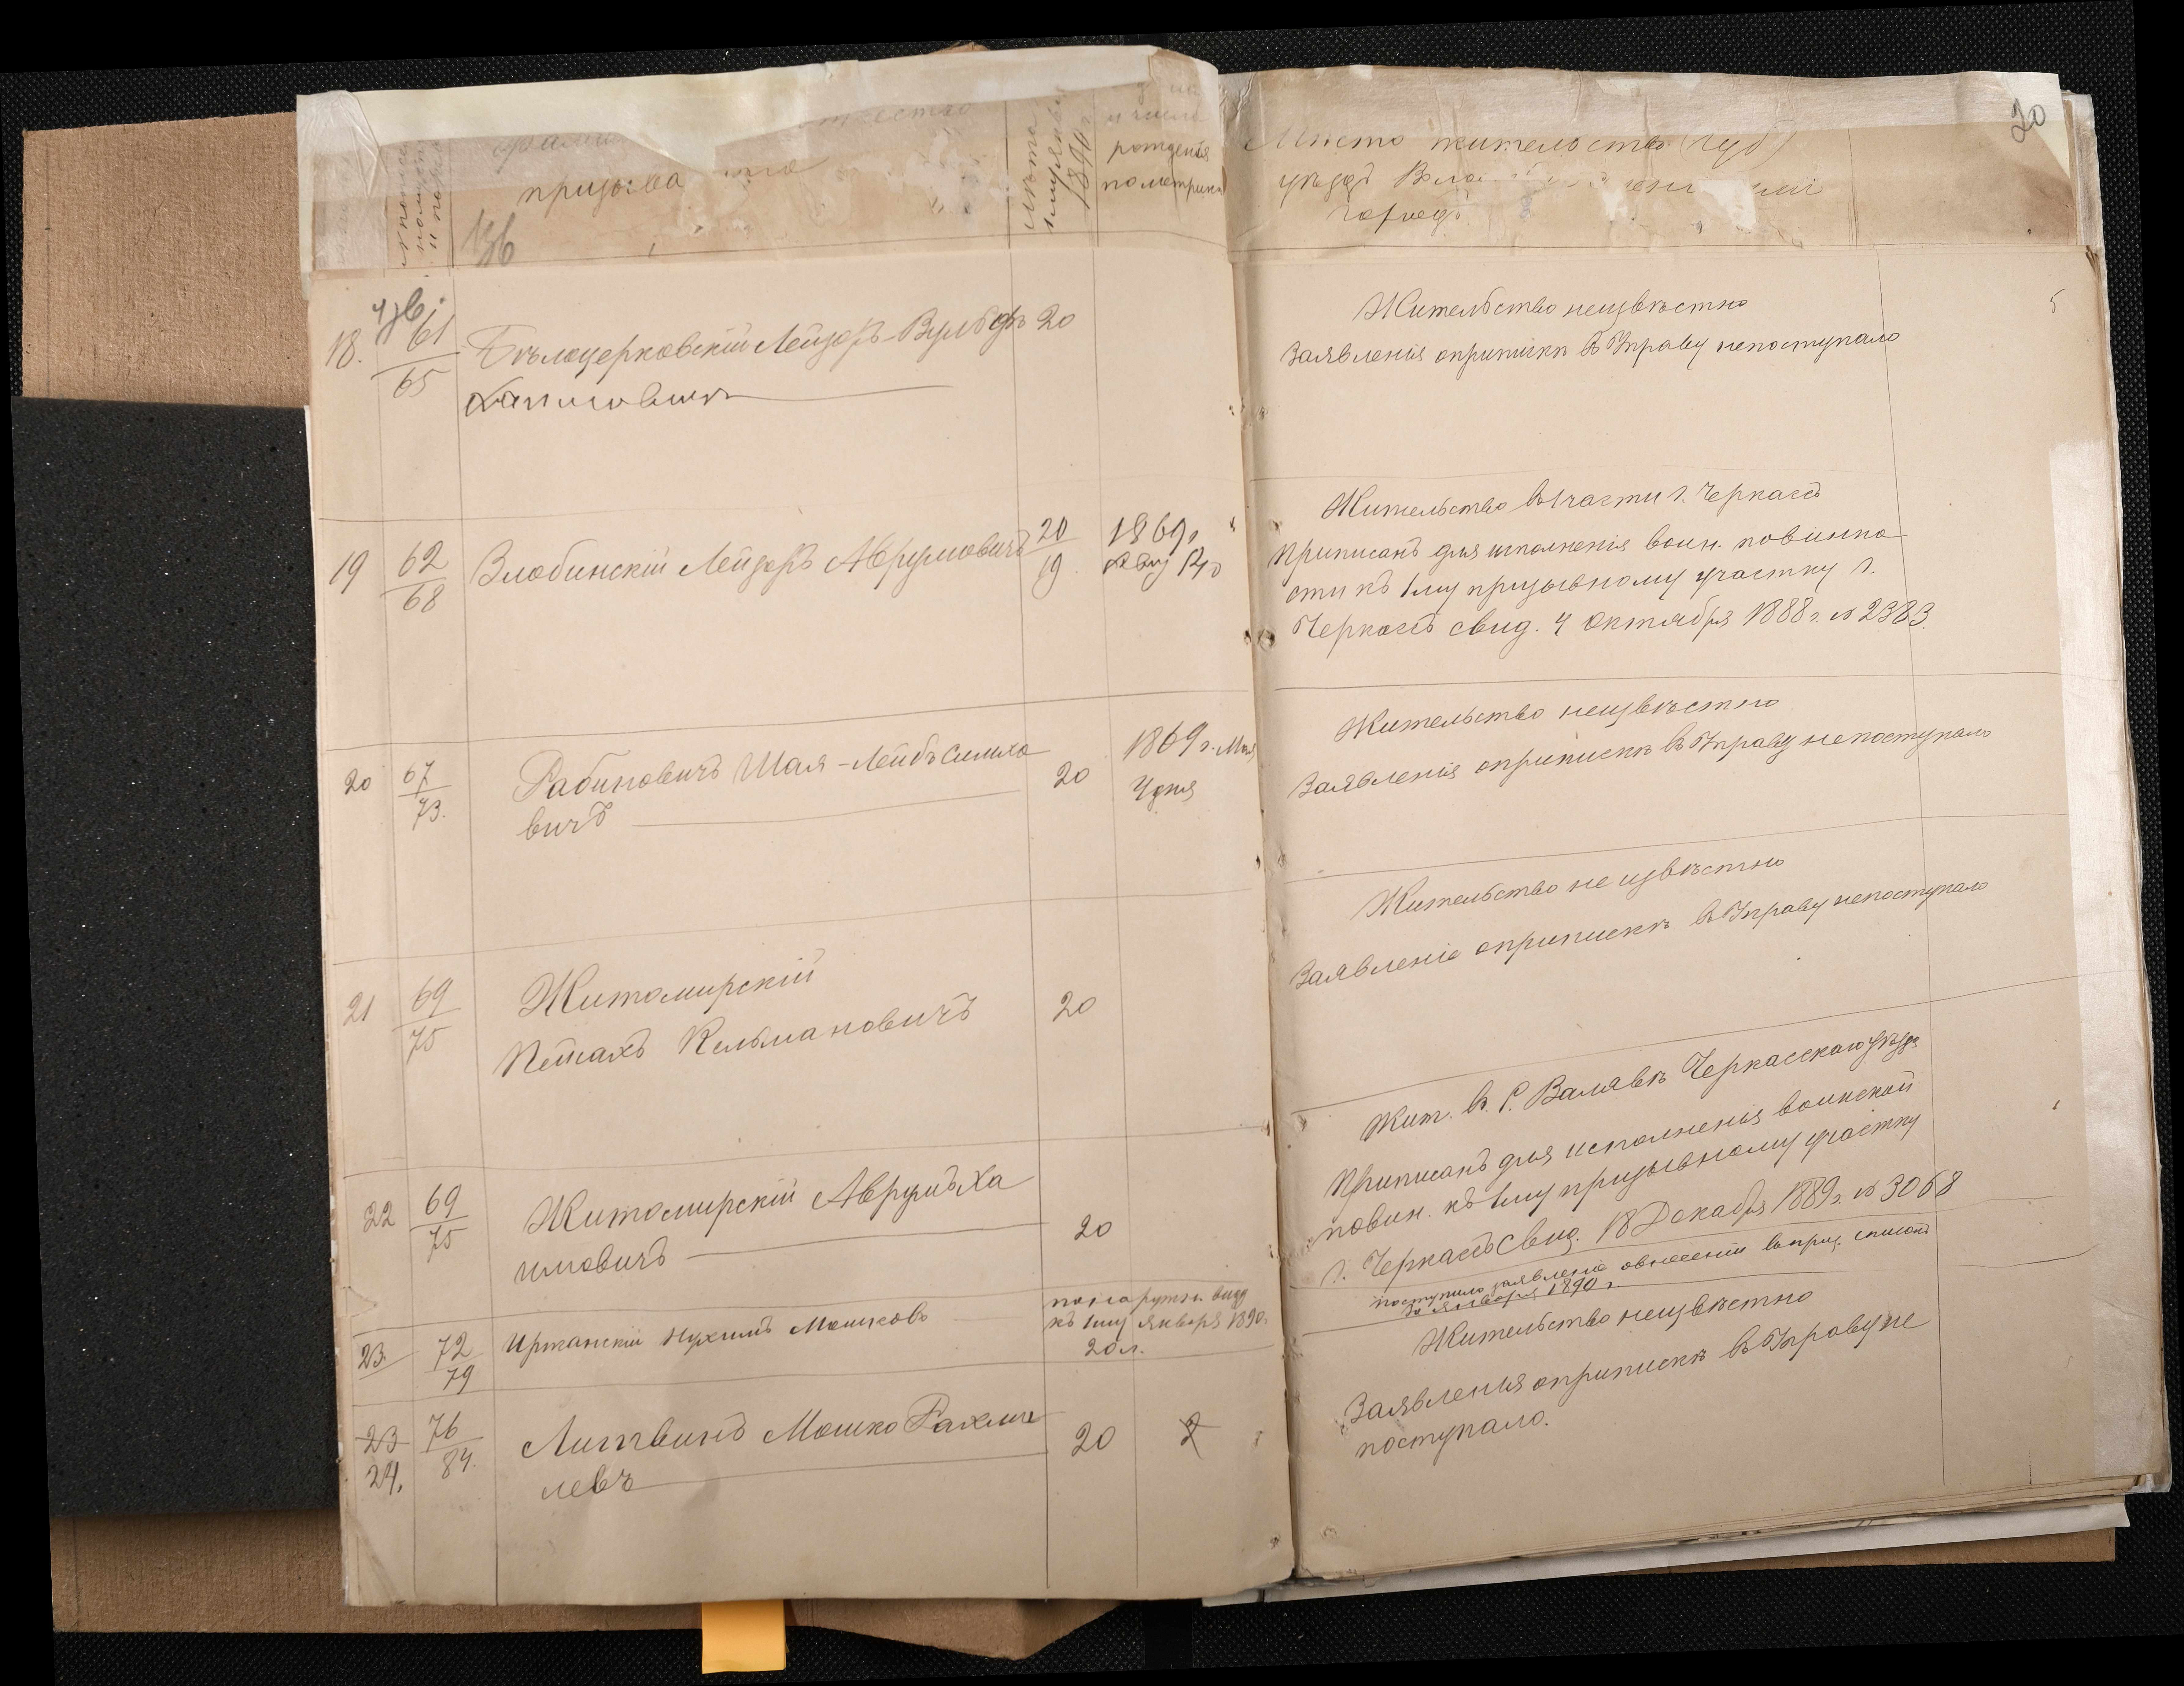 призыва
лѣта
к 1 января
1890 г
и число
рождения
по метрикѣ
Мѣсто жительства (губ)
уѣздъ
городъ
20
136
18. 61/65 Бѣлоцерковскій Лейзоръ-Вульфъ 20
Хаимовичъ
Жительство неизвѣстно
Заявленія о припискѣ в Управу непоступало
5
19 62/68 Злобинскій Лейзоръ Аврумовичъ 20/19 1869 г.
Жительство въ 1 части г. Черкассъ
Приписанъ для исполненія воин. повинно
сти къ 1 му призывному участку г.
Черкассъ свид. 4 Октября 1888 г. № 2383.
20 67/73. Рабиновичъ Шая-Лейбъ Симхо
вичъ 20 1869 г. Мая
4 дня
Жительство неизвѣстно
Заявленія о припискѣ въ Управу непоступало
21 69/75 Житомирскій
Пейсахъ Кельмановичъ 20
Жительство не извѣстно
Заявленіе о припискѣ въ Управу непоступало
22 69/75 Житомирскій Аврумъ Ха
имовичъ 20
Жит. въ С. Валявкѣ Черкасскаго уѣзда
Приписанъ для исполненія воинской
повин. къ 1 му призывному участку
г. Черкассъ Свид. 18 Декабря 1889 г. № 3068
23. 72/79 Иржанскій Нухимъ Мошковъ
по наружн. виду
къ 1 му января 1890 г.
20 л.
поступило заявленіе о внесеніи въ приз. списокъ
30 Января 1890 г.
23 76/84. Литвинъ Мошко Рахми
24. левъ 20 2
Жительство неизвѣстно
Заявленія о припискѣ въ Управу не
поступало.